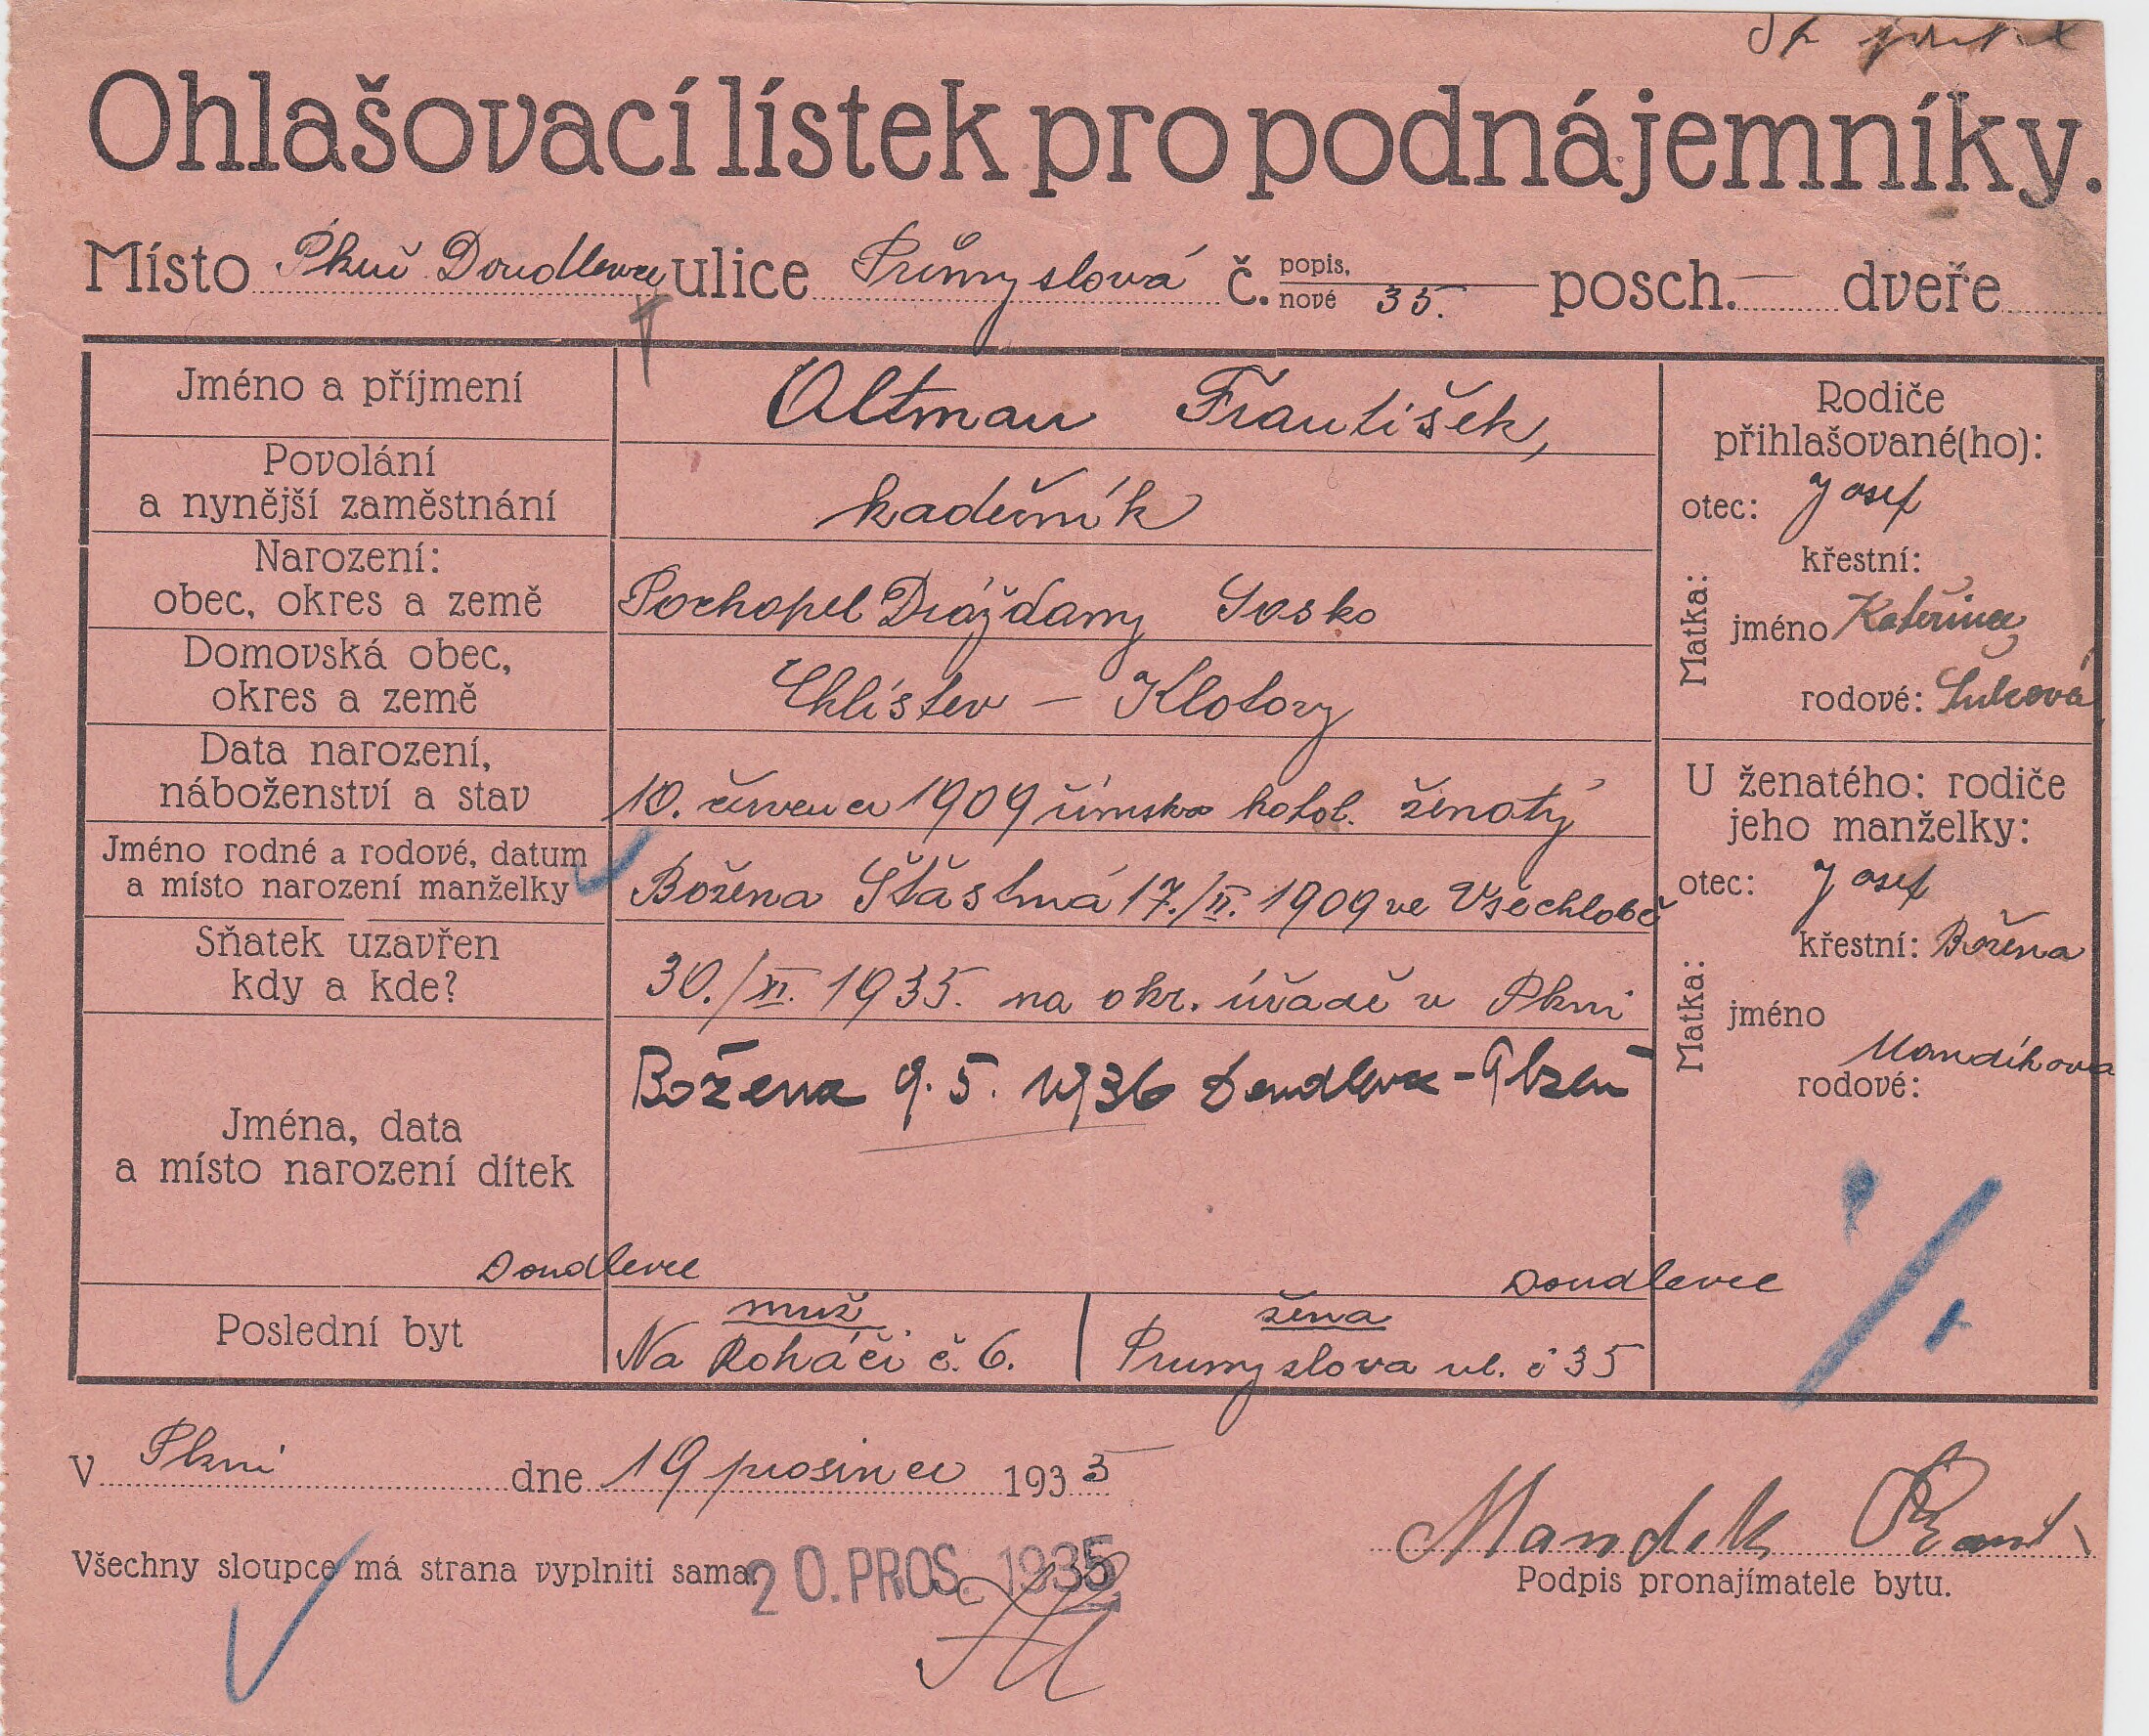 Ohlašovací lístek pro podnájemníky.
Místo Plzeň Doudlevce ulice Průmyslová č. popis. nové 35. posch. — dveře
Jméno a příjmení Altman František,
Povolání
a nynější zaměstnání kadeřník
Narození:
obec, okres a země Pochopel Drážďany Sasko
Domovská obec,
okres a země Chlistov – Klatovy
Data narození,
náboženství a stav 10. července 1909 římsko katol. ženatý
Jméno rodné a rodové, datum
a místo narození manželky Božena Šťastná 17./II. 1909 ve Všechlobě
Sňatek uzavřen
kdy a kde? 30./XI. 1935. na okr. úřadě v Plzni
Jména, data
a místo narození dítek Božena 9. 5. 1936 Doudlevce - Plzeň
Doudlevce Doudlevce
Poslední byt muž žena
Na Roháči č. 6. Prumyslova ul. č 35
Rodiče
přihlašované(ho):
otec: Josef
Matka:
křestní:
jméno Kateřina
rodové:
U ženatého: rodiče
jeho manželky:
otec: Josef
Matka:
křestní: Božena
jméno
Mandíkova
rodové:
V Plzni dne 19 prosince 1935
Všechny sloupce má strana vyplniti sama.
20. PROS. 1935
Mandík
Podpis pronajímatele bytu.